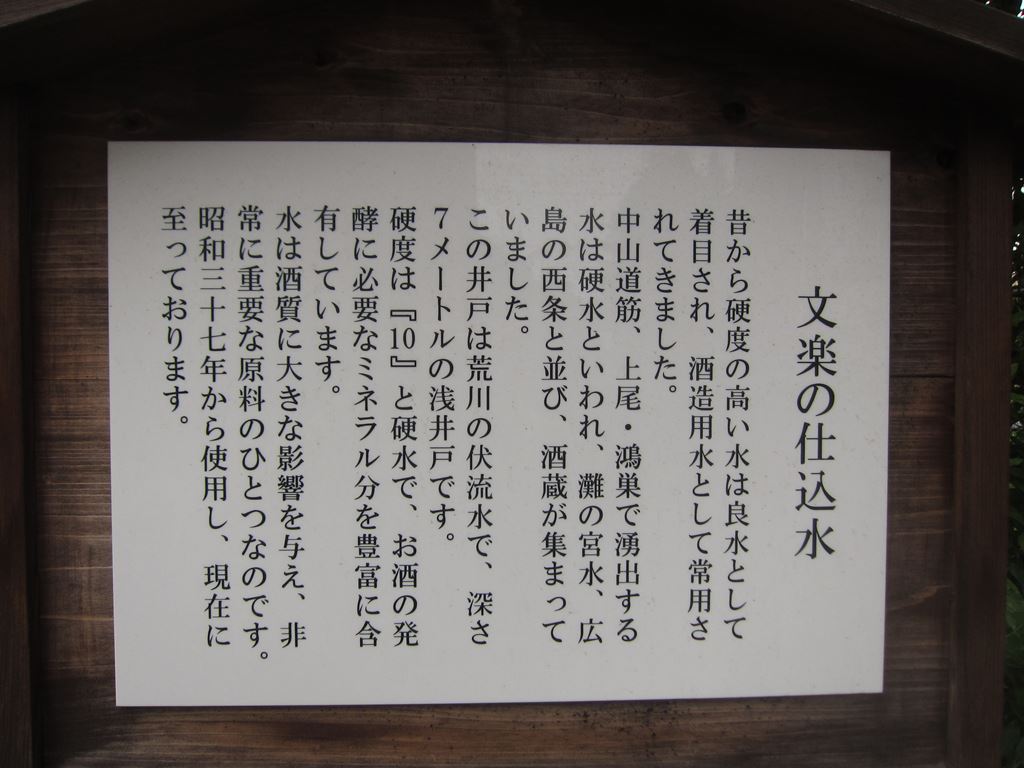 文楽の仕込水
昔から硬度の高い水は良水として
着目され、酒造用水として常用さ
れてきました。
中山道筋、上尾・鴻巣で湧出する
水は硬水といわれ、灘の宮水、広
島の西条と並び、酒蔵が集まって
いました。
この井戸は荒川の伏流水で、深さ
7メートルの浅井戸です。
硬度は『10』と硬水で、お酒の発
酵に必要なミネラル分を豊富に含
有しています。
水は酒質に大きな影響を与え、非
常に重要な原料のひとつなのです。
昭和三十七年から使用し、現在に
至っております。